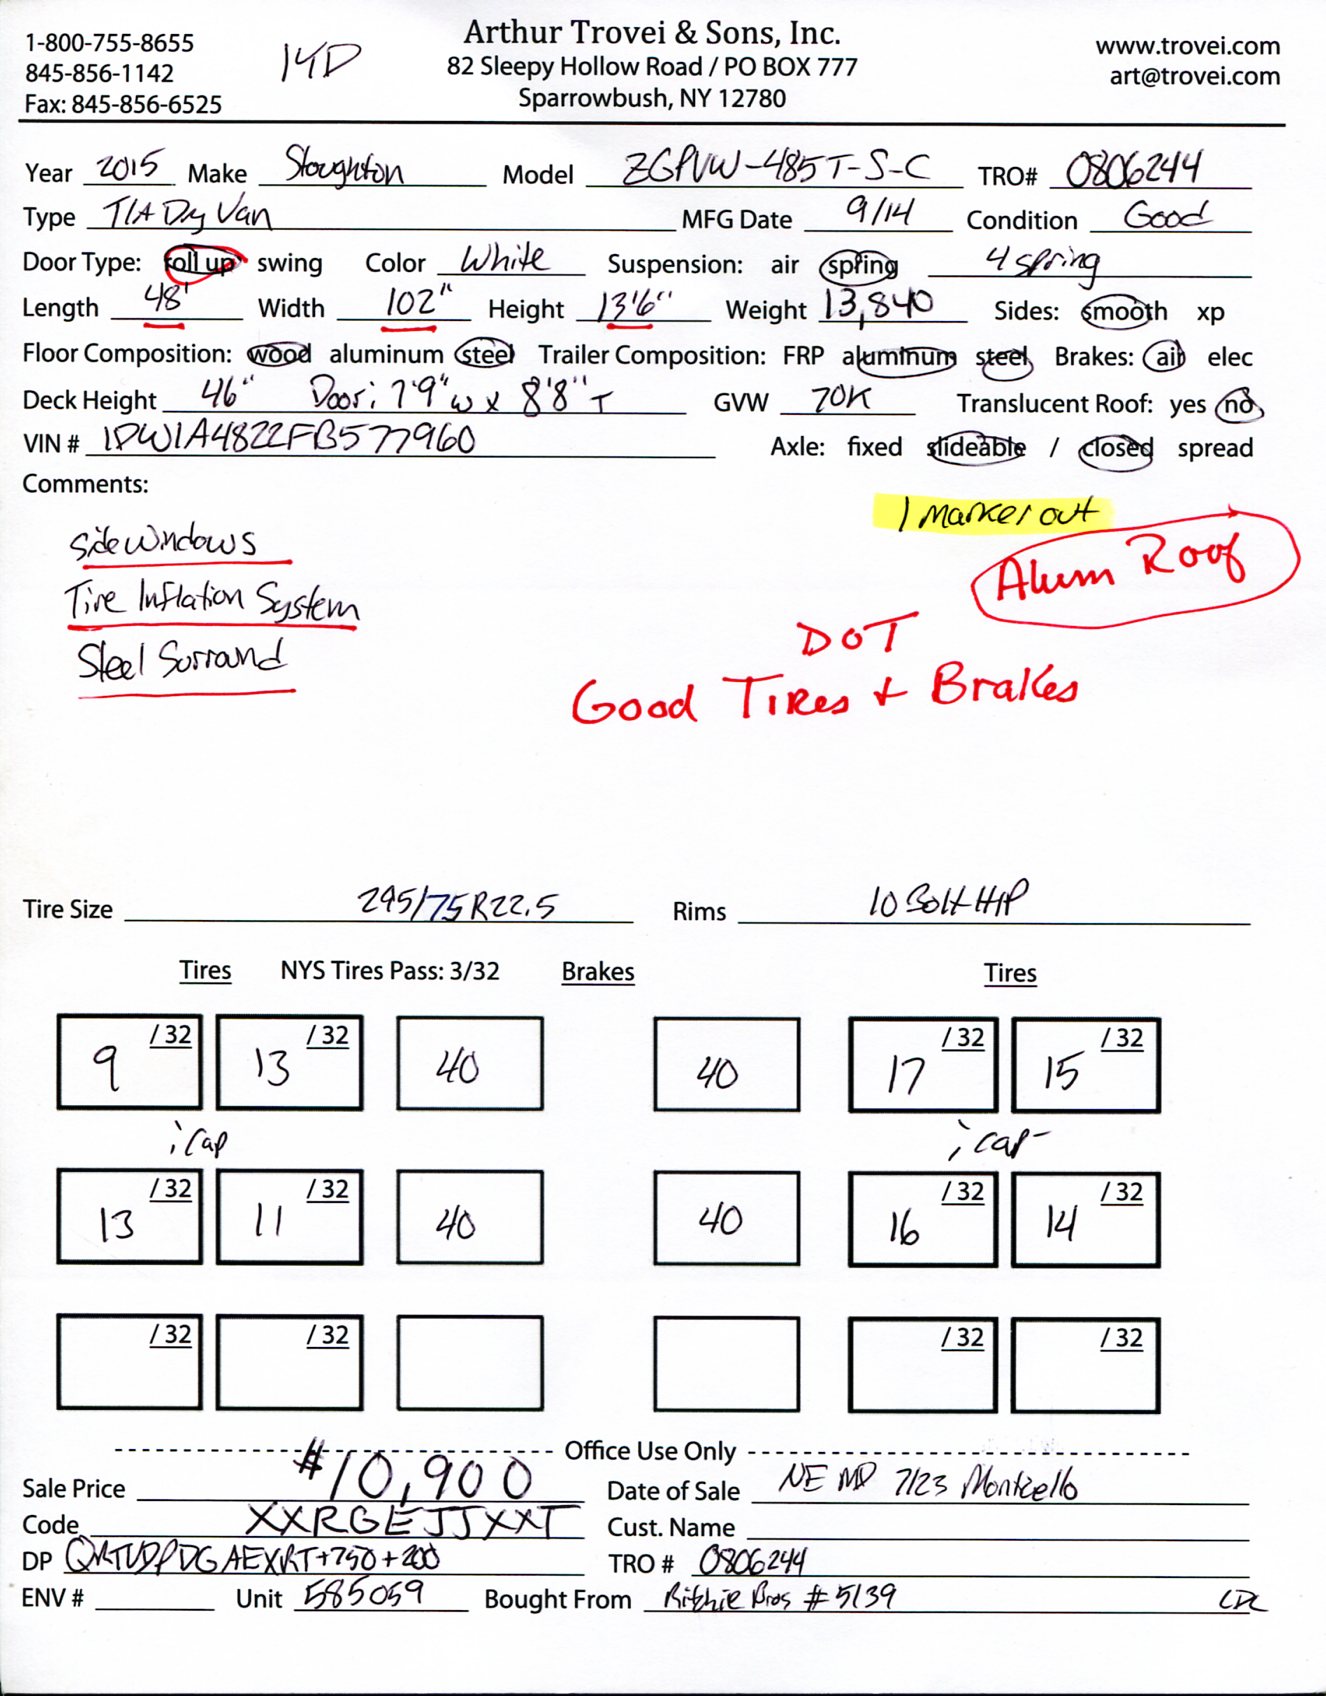 1-800-755-8655
845-856-1142
Fax: 845-856-6525
14D
Arthur Trovei & Sons, Inc.
82 Sleepy Hollow Road / PO BOX 777
Sparrowbush, NY 12780
www.trovei.com
art@trovei.com
Year 2015 Make Stoughton Model ZGPVW-485T-S-C TRO# 0806244
Type T/A Dry Van MFG Date 9/14 Condition Good
Door Type: roll up swing Color White Suspension: air spring 4 spring
Length 48' Width 102" Height 13'6" Weight 13,840 Sides: smooth xp
Floor Composition: wood aluminum steel Trailer Composition: FRP aluminum steel Brakes: air elec
Deck Height 46" Door: 7'9"w x 8'8"T GVW 70K Translucent Roof: yes no
VIN # 1DW1A4822FB577960 Axle: fixed slideable / closed spread
Comments:
1 Marker out
side windows
Alum Roof
Tire Inflation System
DOT
Steel Surround
Good Tires + Brakes
Tire Size 295/75R22.5 Rims 10 Bolt H/P
Tires NYS Tires Pass: 3/32 Brakes Tires
9 /32 13 /32 40 40 17 /32 15 /32
; cap ; cap
13 /32 11 /32 40 40 16 /32 14 /32
/32 /32 /32 /32
Office Use Only
Sale Price #10,900 Date of Sale NE MD 7/23 Monticello
Code XXRGEJJXXT Cust. Name
DP +750+200 TRO # 0806244
ENV # Unit 585059 Bought From Ritchie Bros #5139